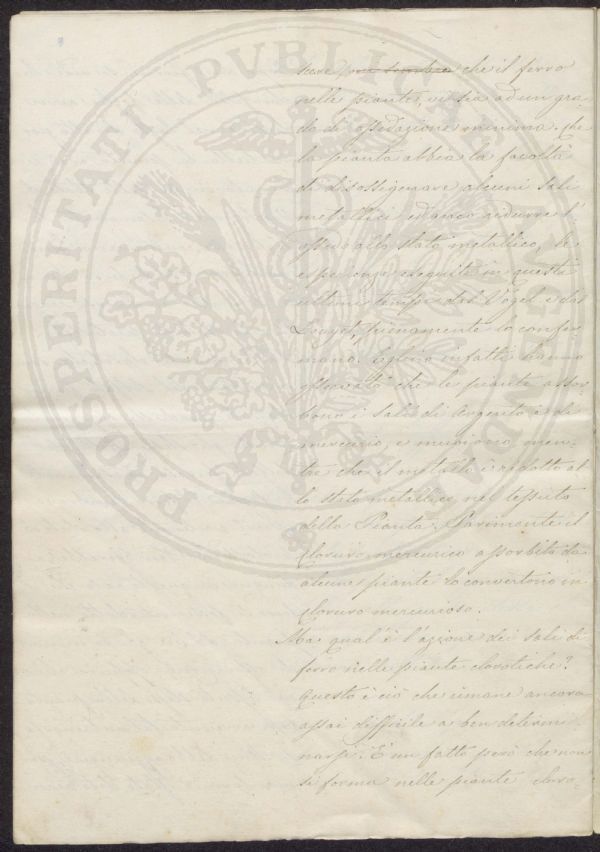 PROSPERITATI PUBLICAE AUGENDAE
che il ferro
nelle piante, vi sia ad un gra-
do di ossidazione minima. Che
la pianta abbia la facoltà
di disossigenare alcuni sali
metallici, ridurre l'
ossido allo stato metallico, le
esperienze eseguite in questi
ultimi tempi dal Vogel e dal
pienamente lo confer-
mano. Eglino infatti hanno
osservato che le piante assor-
bono i sali di Argento e di
mercurio, e muojono men-
tre che il metallo è ridotto al-
lo stato metallico nel tessuto
della Pianta. Parimente il
Cloruro mercurico assorbito da
alcune piante lo convertono in
Cloruro mercurioso.
Ma qual'è l'azione dei sali di
ferro nelle piante clorotiche?
Questo è ciò che rimane ancora
assai difficile a ben determi-
narsi. È un fatto però che non
si forma nelle piante cloro-